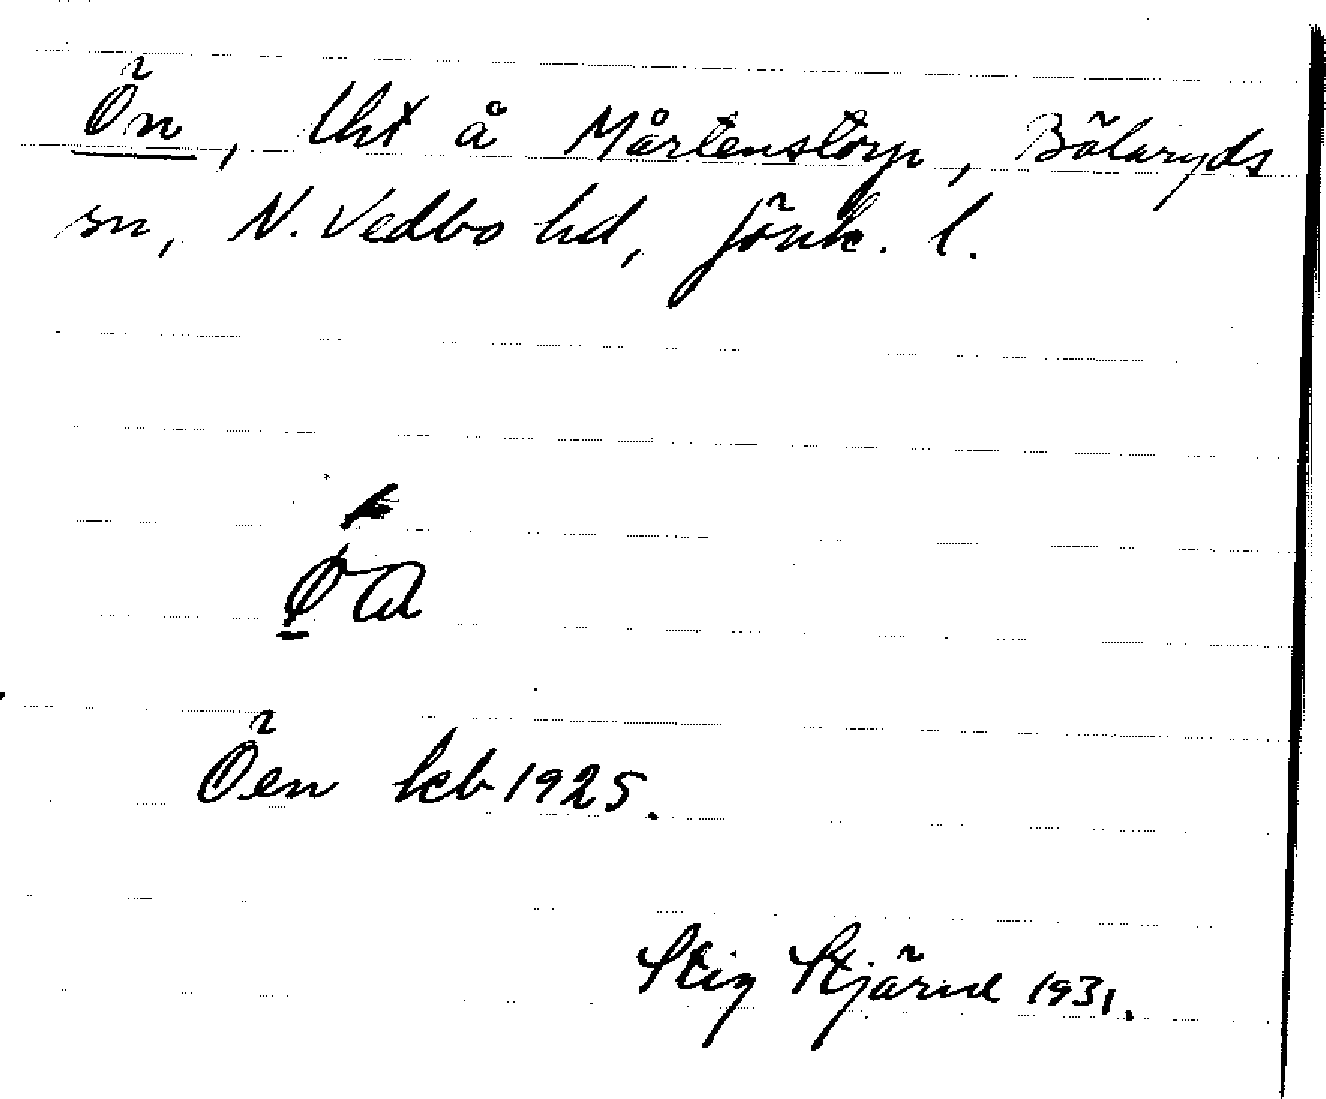 Ön, lht å Mårtenstorp, Bälaryds
sn, N. Vedbo hd, Jönk. l.
Öen kb 1925.
Stig Stjärnd 1931.